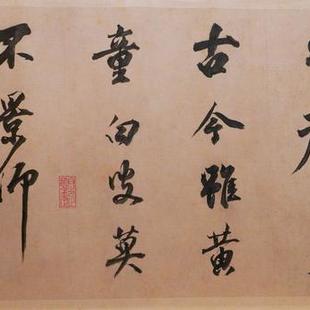 古今雖黄
童白叟莫
不景仰